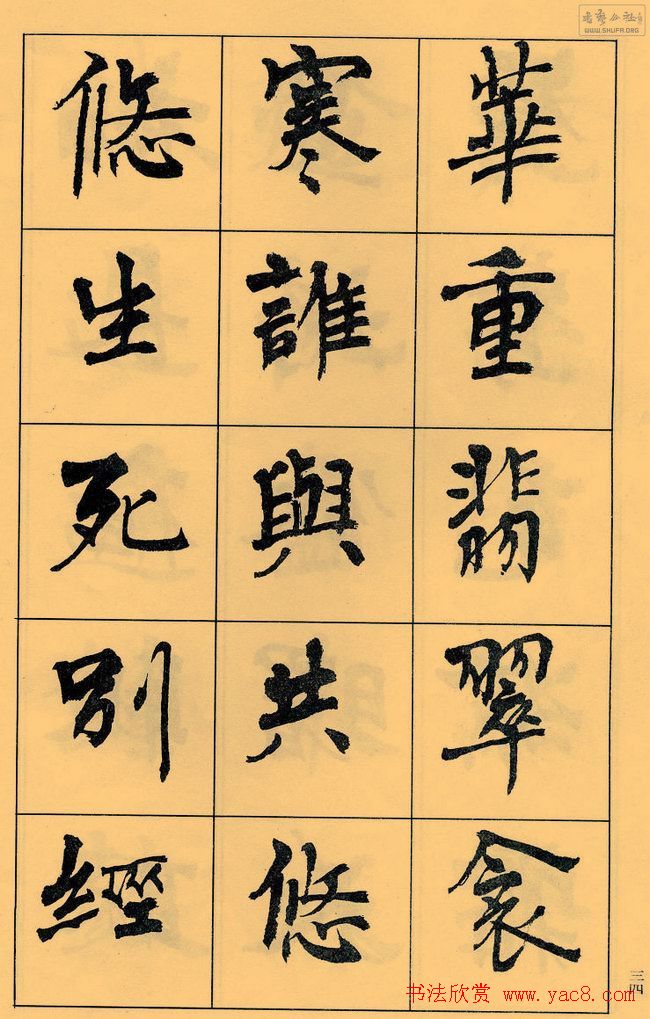 華重翡翠衾
寒誰與共悠
悠生死別經
三四
书法欣赏 www.yac8.com
WWW.SHUFA.ORG